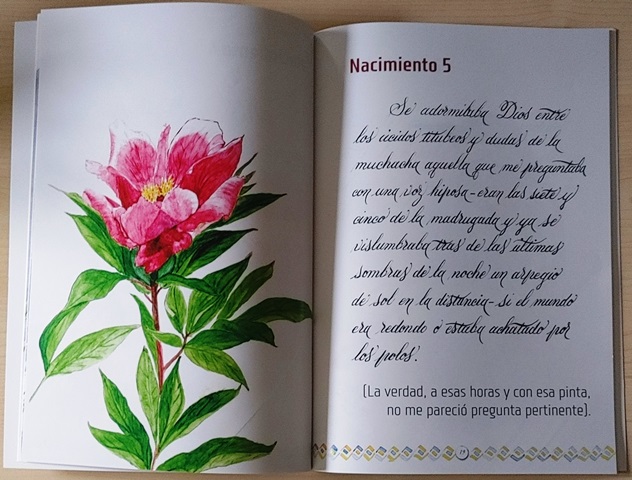 Nacimiento 5
Se adormilaba Dios entre
los ácidos titubeos y dudas de la
muchacha aquella que me preguntaba
con una voz hiposa-eran las siete y
cinco de la madrugada y ya se
vislumbraba tras de las últimas
sombras de la noche un arpegio
de sol en la distancia- si el mundo
era redondo o estaba achatado por
los polos.
(La verdad, a esas horas y con esa pinta,
no me pareció pregunta pertinente).
19